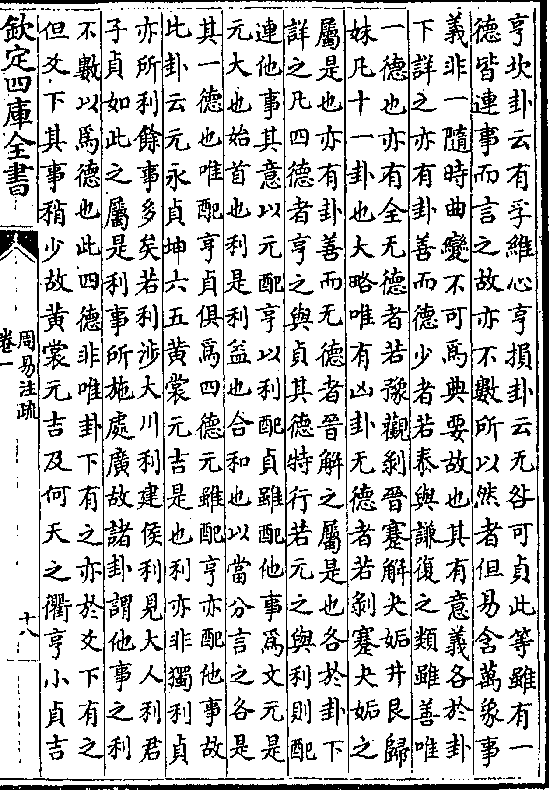 亨坎卦云有孚維心亨損卦云无咎可貞此等雖有一
德皆連事而言之故亦不數所以然者但易含萬象事
義非一隨時曲變不可為典要故也其有意義各於卦
下詳之亦有卦善而德少者若泰與謙復之類雖善唯
一德也亦有全无德者若豫觀剝晉蹇解夬姤井艮歸
妹凡十一卦也大略唯有凶卦无德者若剝蹇夬姤之
屬是也亦有卦善而无德者晉解之屬是也各於卦下
詳之凡四德者亨之與貞其德特行若元之與利則配
連他事其意以元配亨以利配貞雖配他事為文元是
元大也始首也利是利益也合和也以當分言之各是
其一德也唯配亨貞俱為四德元雖配亨亦配他事故
此卦云元永貞坤六五黃裳元吉是也利亦非獨利貞
亦所利餘事多矣若利涉大川利建侯利見大人利君
子貞如此之屬是利事所施處廣故諸卦謂他事之利
不數以為德也此四德非唯卦下有之亦於爻下有之
但爻下其事稍少故黃裳元吉及何天之衢亨小貞吉
欽定四庫全書
周易注疏
卷一
十八